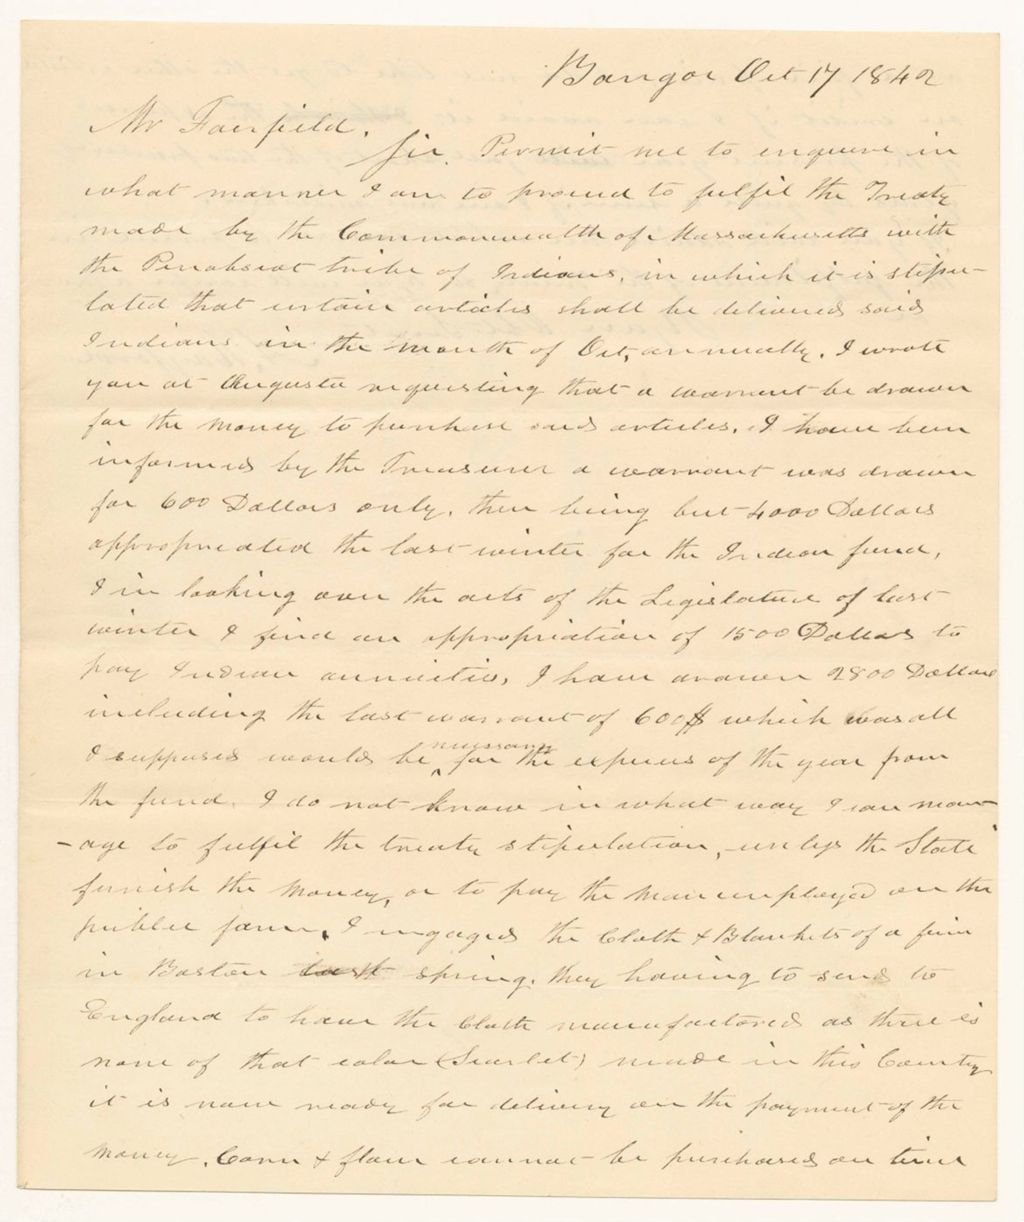 Bangor Oct 17 1842
Mr Fairfield.
Sir. Permit me to enquire in
what manner I am to proceed to fulfil the Treaty
made by the Commonwealth of Massachusetts with
the Penobscot tribe of Indians, in which it is stipu-
lated that certain articles shall be delivered said
Indians in the month of Oct, annually. I wrote
you at Augusta requesting that a warrant be drawn
for the money to purchase said articles. I have been
informed by the Treasurer a warrant was drawn
for 600 Dollars only. there being but 4000 Dollars
appropriated the last winter for the Indian fund,
I in looking over the acts of the Legislature of last
winter I find an appropriation of 1500 Dollars to
pay Indian annuities, I have drawn 2800 Dollars
including the last warrant of 600$ which was all
I supposed would be necessary for the expenses of the year from
the fund. I do not know in what way I can man-
-age to fulfil the treaty stipulation, unless the State
furnish the money, or to pay the man employed on the
public farm. I engaged the Cloth & Blankets of a firm
in Boston last spring. they having to send to
England to have the Cloth manufactored as there is
none of that color (Scarlet) made in this Country
it is now ready for delivery on the payment of the
money. Corn & flour cannot be purchased on time